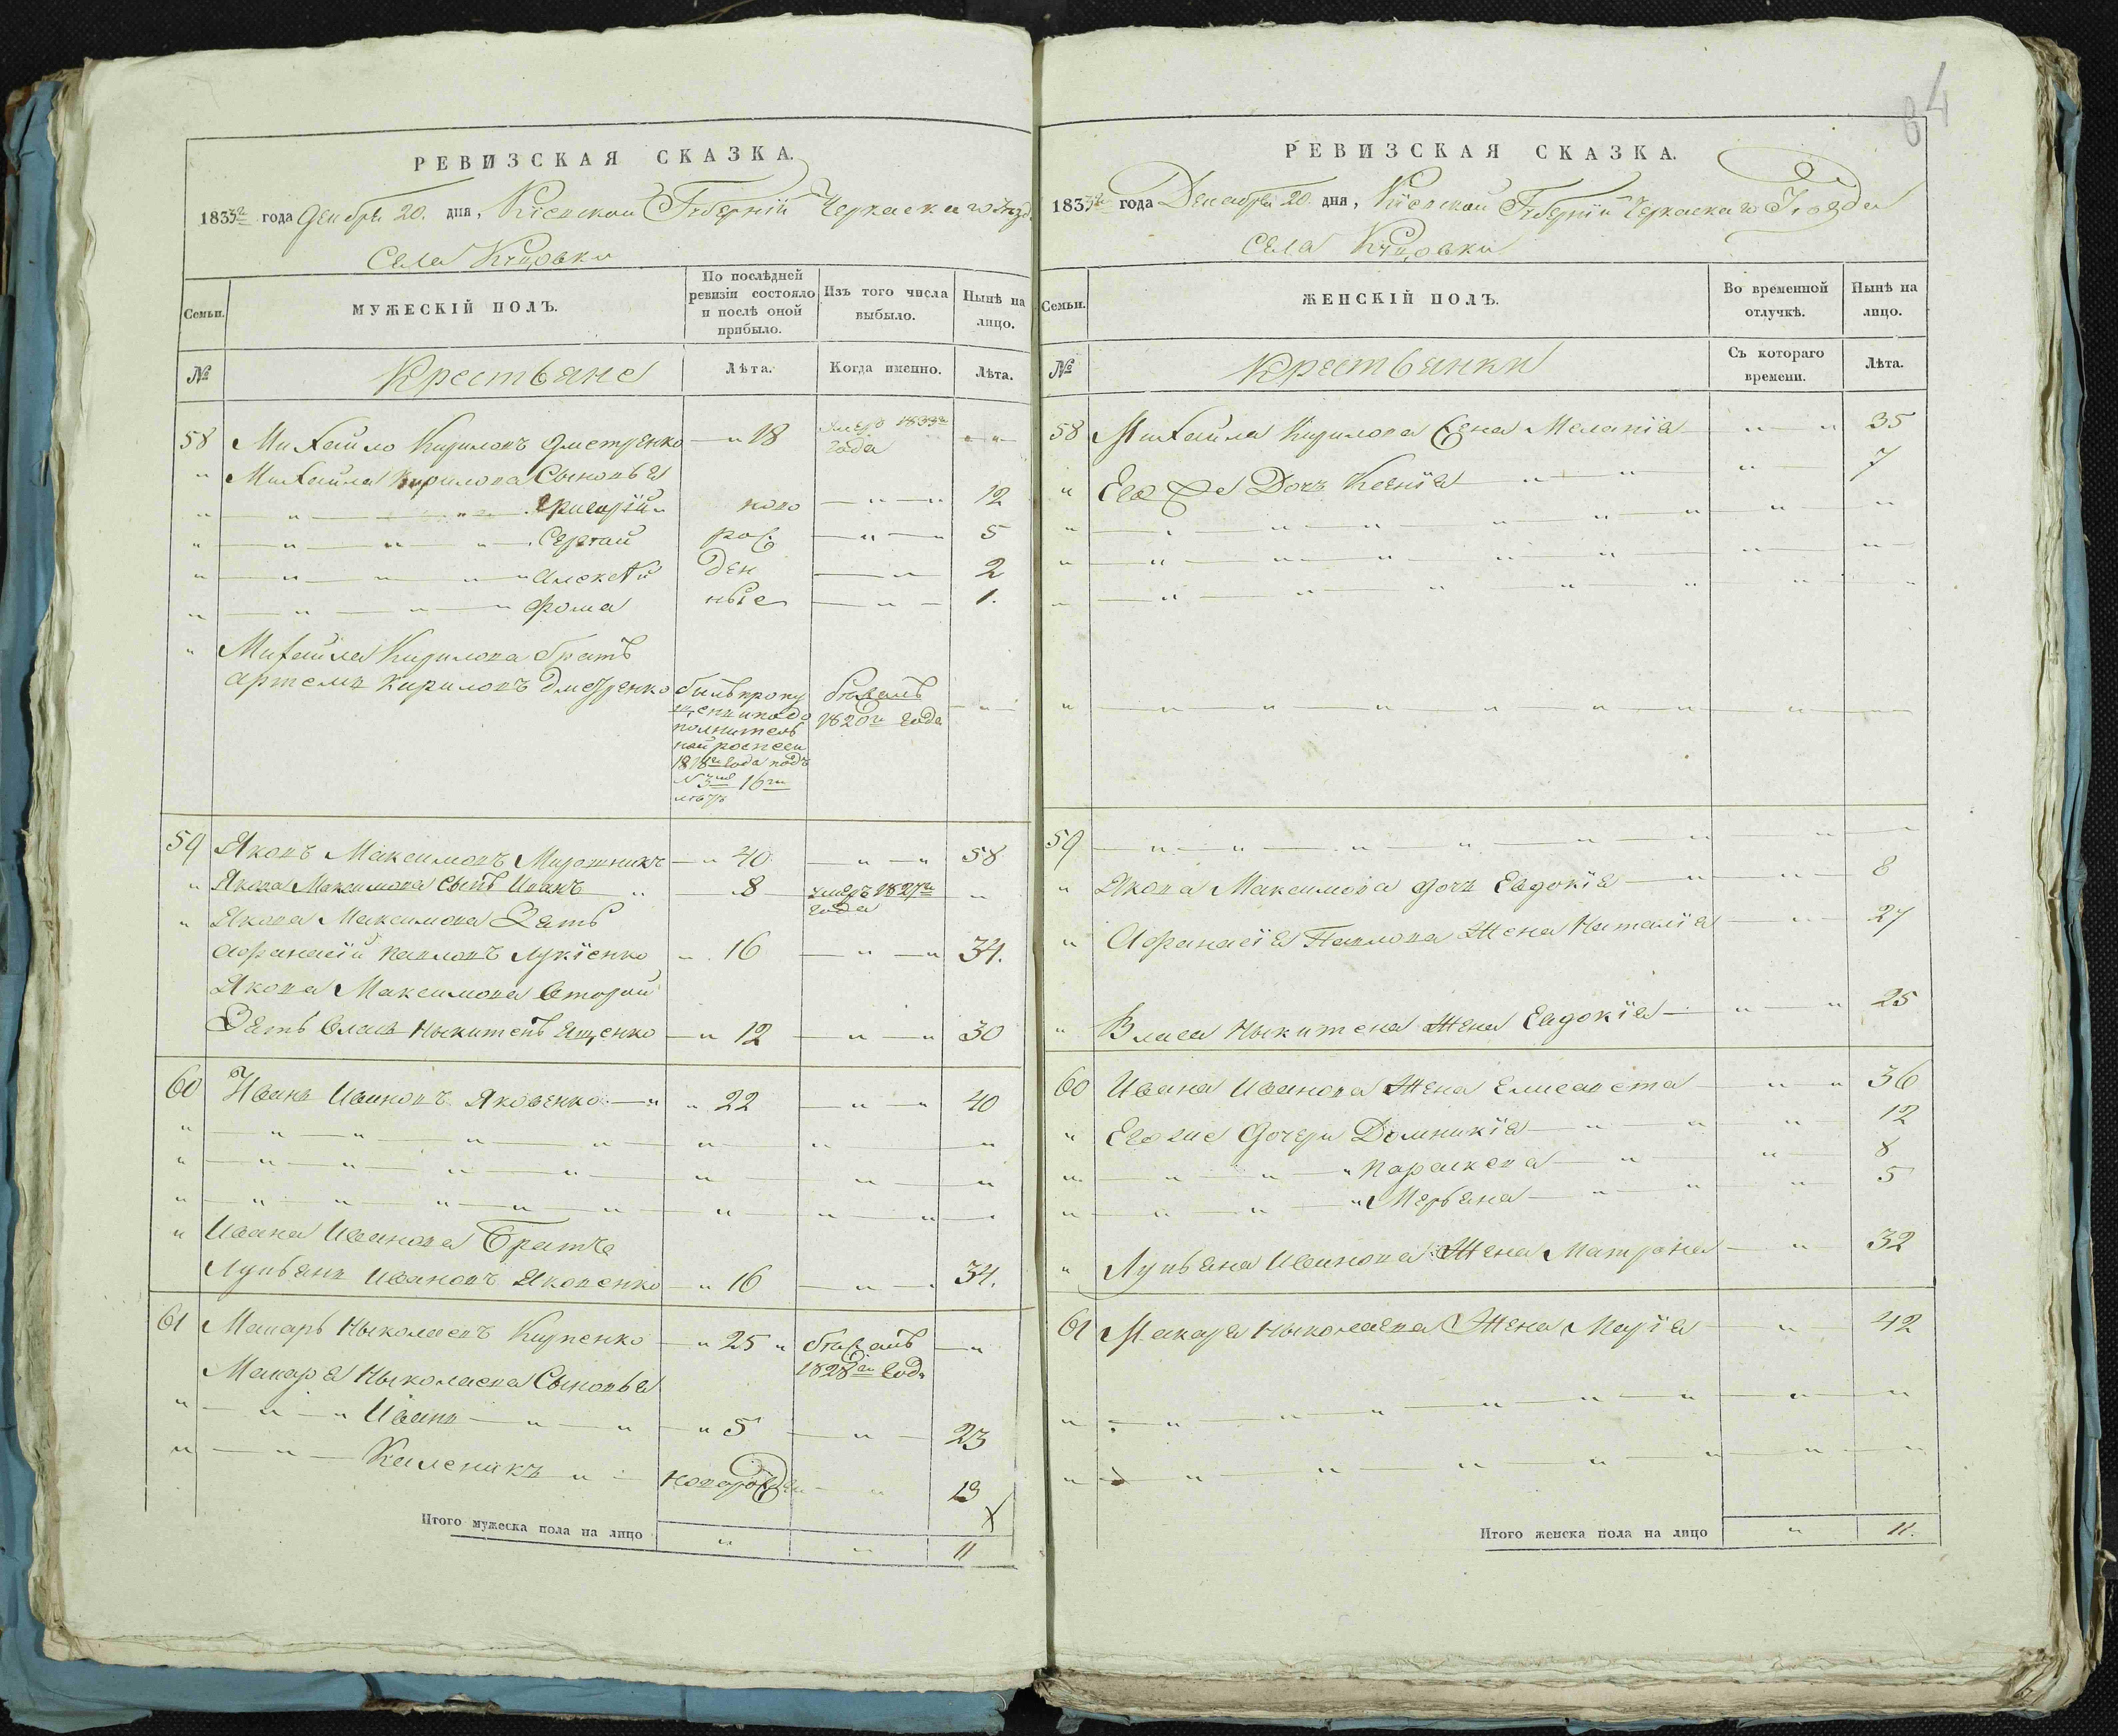 РЕВИЗСКАЯ СКАЗКА.
1833го года Декабря 20. дня, Кіевской Губерніи Черкаскаго Уезд
Села
Семьи.
МУЖЕСКІЙ ПОЛЪ.
По послѣдней ревизіи состояло и послѣ оной прибыло.
Изъ того числа выбыло.
Нынѣ на лицо.
№
Крестьяне
Лѣта.
Когда именно.
Лѣта.
58 Михайло Кириловъ Дметренко — " 18 умеръ 1833го года " "
" Михайла Кирилова Сыновья
" " " Григорій " ново — " — " 12
" — " " " Сергей рож — " — " 5
" — " " " Алексей ден — " 2
" — " — " — " Фома ные — " — 1.
" Михайла Кирилова братъ
Артемъ Кириловъ Дметренко былъ пропу бежалъ — " —
щенъ и по до 1820го года
полнитель
ной росписи
1818го года подъ
№ 3мъ 16ти
летъ
59 Яковъ Максимовъ Мирошникъ — " 40 — " — " 58
" Якова Максимова сынъ Иванъ " " 8 умеръ 1827го года "
" Якова Максимова Зять
Афанасій Павловъ Лукіенко " 16 — " — " 34.
Якова Максимова Второй
Зять Власъ Ныкитенъ Ященко — " 12 — " — " 30
60 Иванъ Ивановъ Яковенко — " " 22 — " — " 40
" — " — " — " — " — " — " — "
" — " — " — " — " — " — " — "
" — " — " — " — " — " — " — "
" Ивана Иванова Братъ
Лукьянъ Ивановъ Яковенко — " 16 — " — " 34.
61 Макаръ Ныколаевъ Кирпенко — " 25 " бежалъ 1828го года — "
Макара Ныколаева Сыновья
" — " — " Иванъ — " — " — " 5 — " — 23
" — " — Каленикъ — " — новорожден — " 13
Итого мужеска пола на лицо " " 11
84
РЕВИЗСКАЯ СКАЗКА.
1833го года Декабря 20. дня, Кіевской Губерніи Черкаскаго Уезда
Села
Семьи.
ЖЕНСКІЙ ПОЛЪ.
Во временной отлучкѣ.
Нынѣ на лицо.
№
Крестьянки
Съ котораго времени.
Лѣта.
58 Михайла Кирилова Жена Меланія — " — " 35
" Его же Дочь Ксенія — " — " " — 7
" — " — " — " — " — " — "
" — " — " — " — " — " — "
" — " — " — " — " — " — "
" — " — " — " — " — " — "
59 — " — " — " — " — " — " —
" Якова Максимова дочь Евдокія — " — " — 8
" Афанасія Павлова Жена Наталія — " — 27
" Власа Ныкитена Жена Евдокія — " — " 25
60 Ивана Иванова Жена Елисавета — " — " 36
" Его же Дочери Домникія — " — " " — 12
" — " — " — " Параскева — " — " — 8
" — " — " — " Марьяна — " — " — 5
" Лукьяна Иванова Жена Матрона — " — 32
61 Макара Ныколаева Жена Марія — " — 42
" — " — " — " — " — " — "
" — " — " — " — " — " — "
Итого женска пола на лицо " 11.